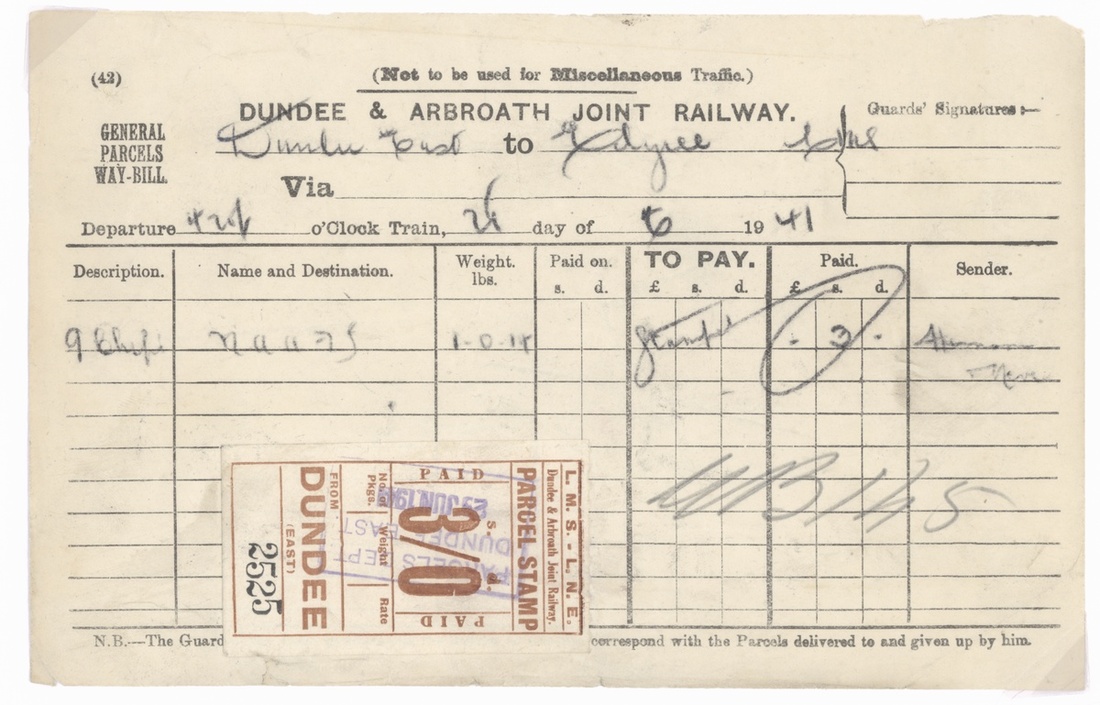 (42)
(Not to be used for Miscellaneous Traffic.)
DUNDEE & ARBROATH JOINT RAILWAY.
Guards' Signatures:—
GENERAL
PARCELS
WAY-BILL.
Dundee East to
Via
Departure o'Clock Train, day of 6 19 41
Description. Name and Destination. Weight. lbs. Paid on. s. d. TO PAY. £ s. d. Paid. £ s. d. Sender.
9 1-0-14 - 3 -
L. M. S. - L. N. E.
Dundee & Arbroath Joint Railway.
PARCEL STAMP
PAID
3/0
s. d.
PAID
No. of Pkgs. Weight Rate
FROM
DUNDEE
(EAST)
2525
JUN 194
PARCELS DEPT
DUNDEE EAST
N.B.—The Guard correspond with the Parcels delivered to and given up by him.